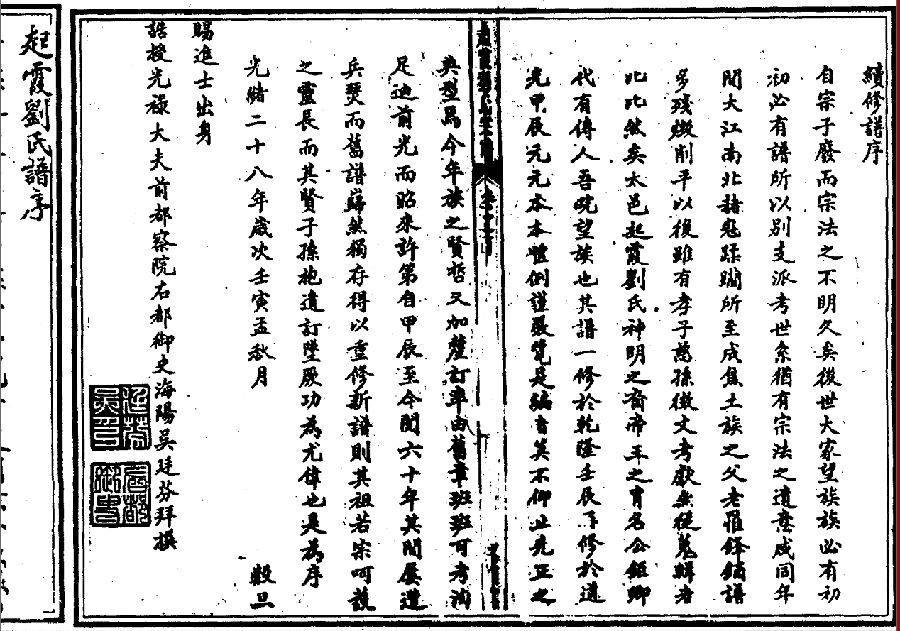 續修譜序
自宗子廢而宗法之不明久矣後世大家望族族必有初
初必有譜所以別支派考世系猶有宗法之遺意咸同年
間大江南北赭寇蹂躪所至成焦土族之父老罹鋒鏑譜
多殘燬削平以後雖有孝子慈孫徵文考獻無從蒐輯者
比比然矣太邑起霞劉氏神明之裔帝王之胄名公鉅卿
代有傳人吾皖望族也其譜一修於乾隆壬辰再修於道
光甲辰元元本本體例謹嚴凡是編者莫不仰止先正之
典型焉今年族之賢哲又加釐訂率由舊章班班可考洵
足迪前光而昭來許第自甲辰至今閱六十年其間屢遭
兵燹而舊譜巋然獨存得以重修新譜則其祖若宗呵護
之靈長而其賢子孫抱遺訂墜厥功為尤偉也是為序
光緒二十八年歲次壬寅孟秋月 穀旦
賜進士出身
誥授光祿大夫前都察院右都御史海陽吳廷芬拜撰
起霞劉氏譜序